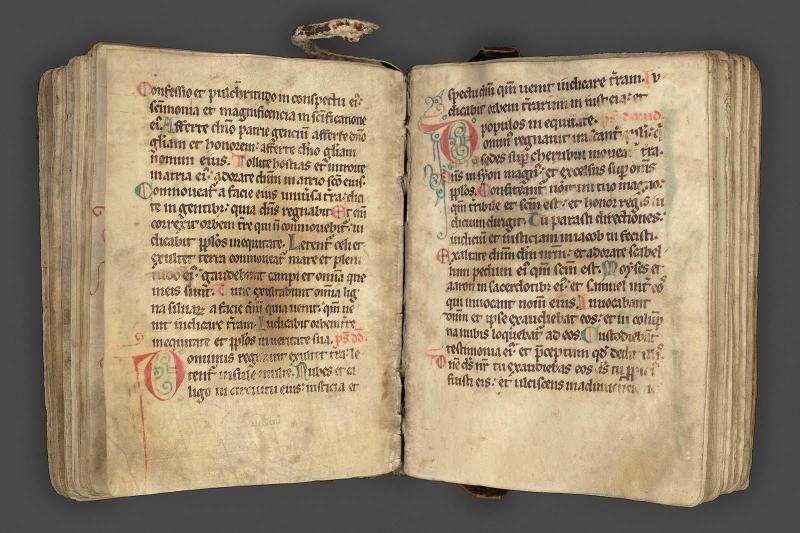 Confessio et pulchritudo in conspectu ei:
sc̄imonia et magnificencia in sc̄ificatione
ei: Afferte dn̄o patrie gencium afferte dn̄o
gl̄iam et honorem: afferte dn̄o gl̄iam
nomini eius. Tollite hostias et introite
in atria ei: adorate dn̄m in atrio sc̄o eius.
Commoueat᷑ a facie eius uniu̾sa t̄ra: dici
te in gentib: quia dn̄s regnabit Et eni
correxit orbem t̄re qui n̄ comouebit᷑: iu
dicabit pp̄los in equitate. Letent᷑ celi et
exultet terra comoueat᷑ mare et pleni
tudo ei: gaudebunt campi et omnia que
in eis sunt. Tunc exultabunt om̄ia lig
na siluar a facie dn̄i quia uenit: qm̄ ue
nit iudicare t̄ram. Iudicabit orbem t̄re
in equitate et pp̄los in ueritate sua. ps̄ dd̄.
Dominus regnauit exultet t̄ra: le
tent᷑ insule multe. Nubes et ca
ligo in circuitu eius: iusticia et
spectu dn̄i qm̄ uenit iudicare t̄ram. Iu
dicabit orbem t̄rarum in iusticia: et
populos in equitate. ps̄ dauid
Dominus regnauit irascant᷑ pp̄li: qi
sedes sup cherubin moueat᷑ t̄ra.
Dn̄s in syon magn: et excelsus sup om̄s
pp̄los. Confiteant᷑ nōini tuo magno:
qm̄ t̄ribile et sc̄m est: et honor regis iu
dicium diligit. Tu parasti directiones:
iudiciū et iusticiam in iacob tu fecisti.
Exaltate dn̄m dm̄ nr̄m: et adorate scabel
lum pedum ei qm̄ sc̄m est. Moyses et
aaron in sacerdotib: ei: et samuel int̄ eo
qui inuocant nom̄ eius. Inuocabant
dn̄m et ipse exaudiebat eos: et in colūp
na nubis loquebat᷑ ad eos. Custodiebāt
testimonia ei: et p̄ceptum qd̄ dedit illi.
Dn̄e ds̄ nr̄ tu exaudiebas eos ds̄ tu ppici
fuisti eis: et ulciscens